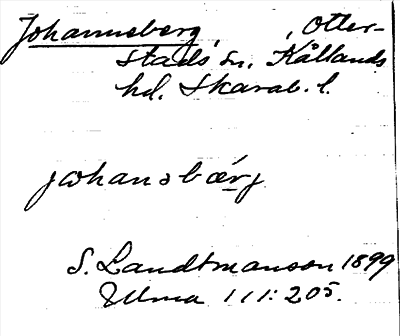 Johannesberg, , Otter-
stads sn. Kållands
hd. Skarab. l.
johansbærj
S. Landtmanson 1899
Ulma 111:205.